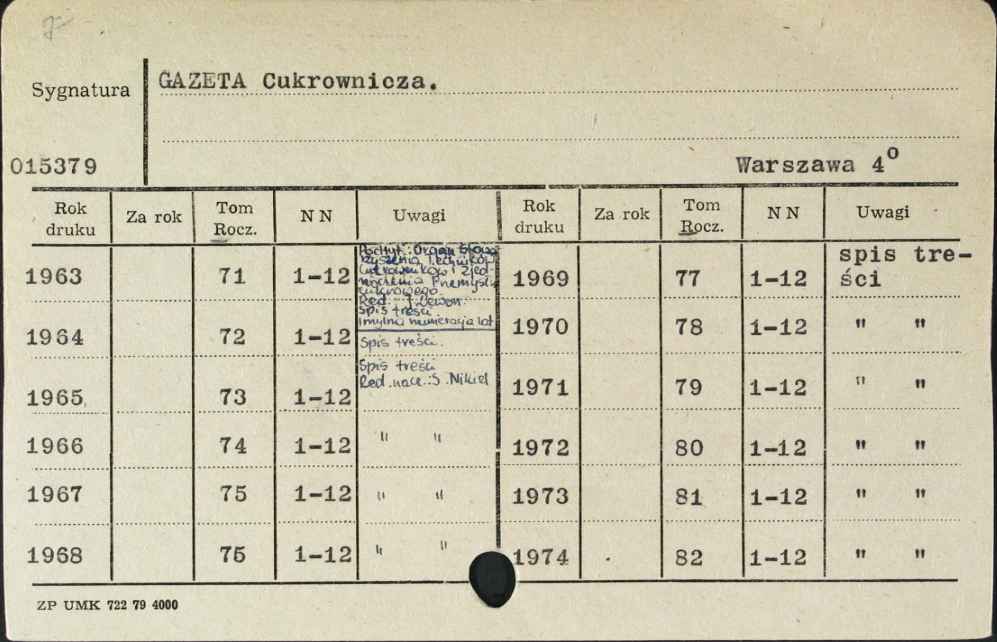 GAZETA Cukrownicza.
Sygnatura
015379
Warszawa 4º
Rok druku Za rok Tom Rocz. N N Uwagi Rok druku Za rok Tom Rocz. N N Uwagi
1963 71 1-12
Podtyt: Organ Stowa-
rzyszenia Techników
Cukrowników i Zjed-
noczenia Przemysłu
cukrowego.
Red. J. Dewon.
Spis treści
i mylna numeracja lat
1969 77 1-12 spis tre-
ści
1964 72 1-12 Spis treści.
1970 78 1-12 " "
1965. 73 1-12 Spis treści
Red. nacz.: S. Nikiel
1971 79 1-12 " "
1966 74 1-12 " "
1972 80 1-12 " "
1967 75 1-12 " "
1973 81 1-12 " "
1968 75 1-12 " "
1974 82 1-12 " "
ZP UMK 722 79 4000